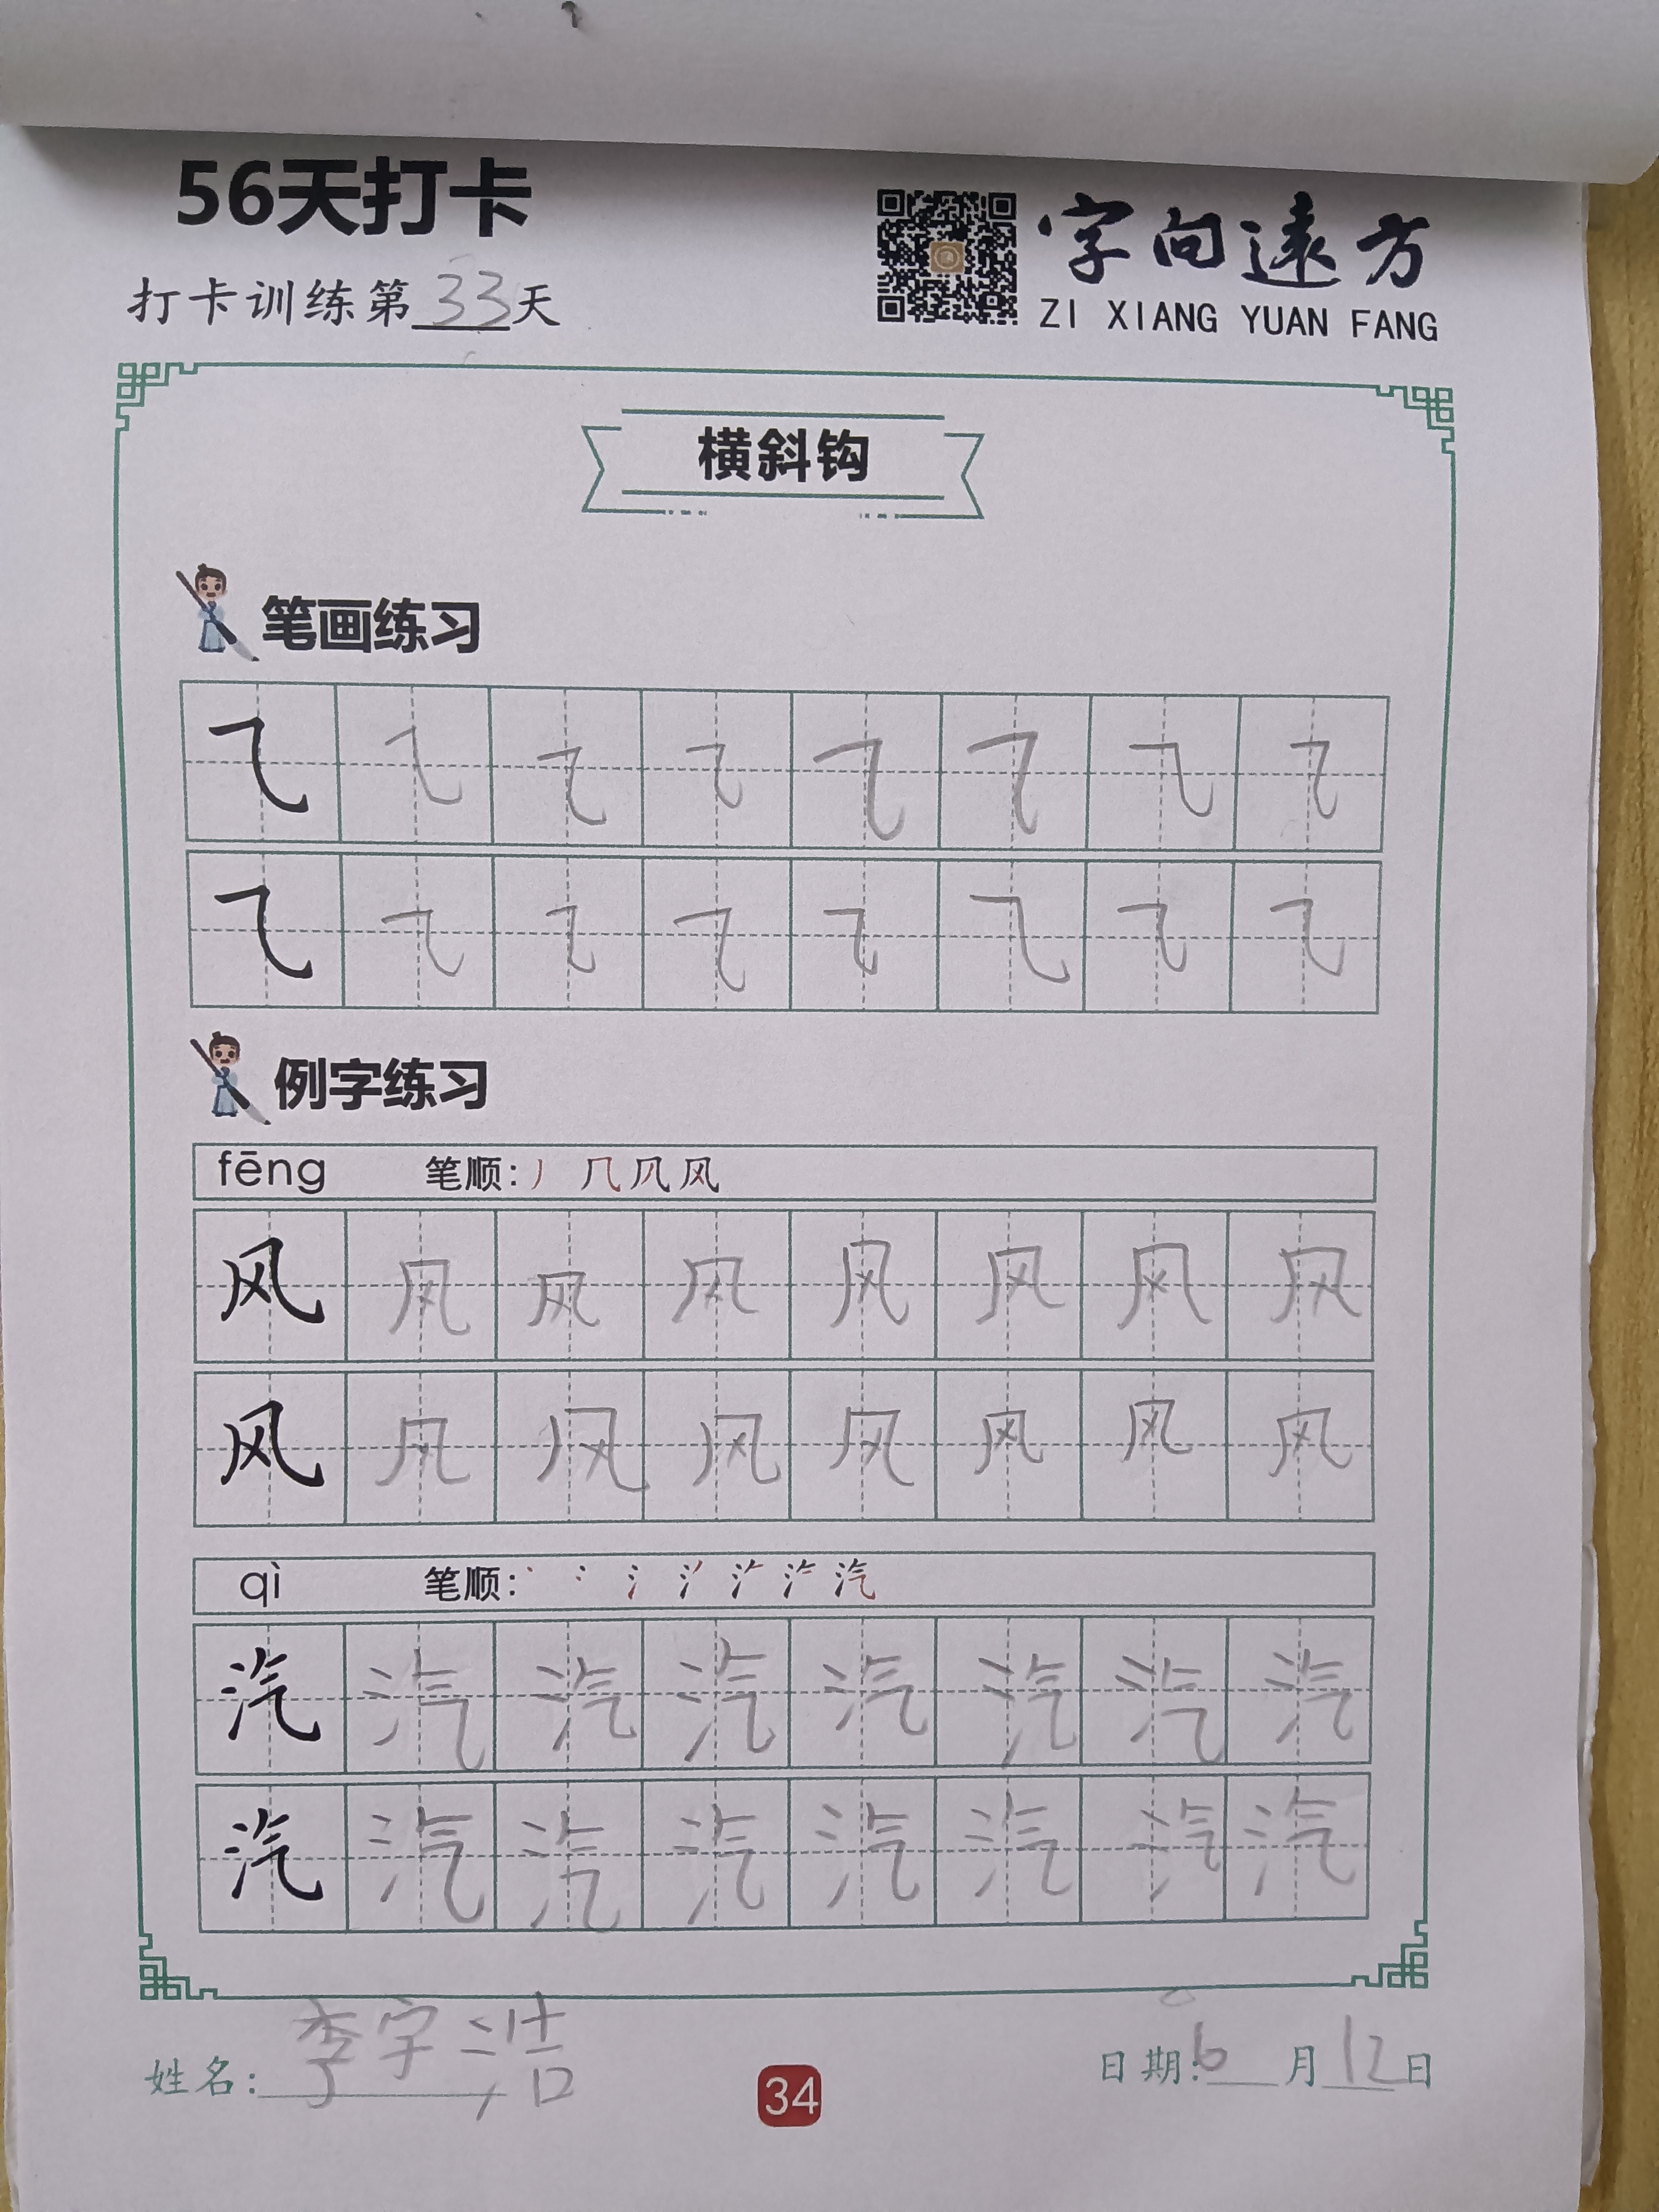 56天打卡
打卡训练第33天
字向遠方
ZI XIANG YUAN FANG
横斜钩
笔画练习
㇈ ㇈ ㇈ ㇈ ㇈ ㇈ ㇈ ㇈
㇈ ㇈ ㇈ ㇈ ㇈ ㇈ ㇈ ㇈
例字练习
fēng 笔顺: 丿 几 凤 风
风 风 风 风 风 风 风 风
风 风 风 风 风 风 风 风
qì 笔顺: 汽
汽 汽 汽 汽 汽 汽 汽 汽
汽 汽 汽 汽 汽 汽 汽 汽
姓名: 李宇浩
34
日期: 6月12日